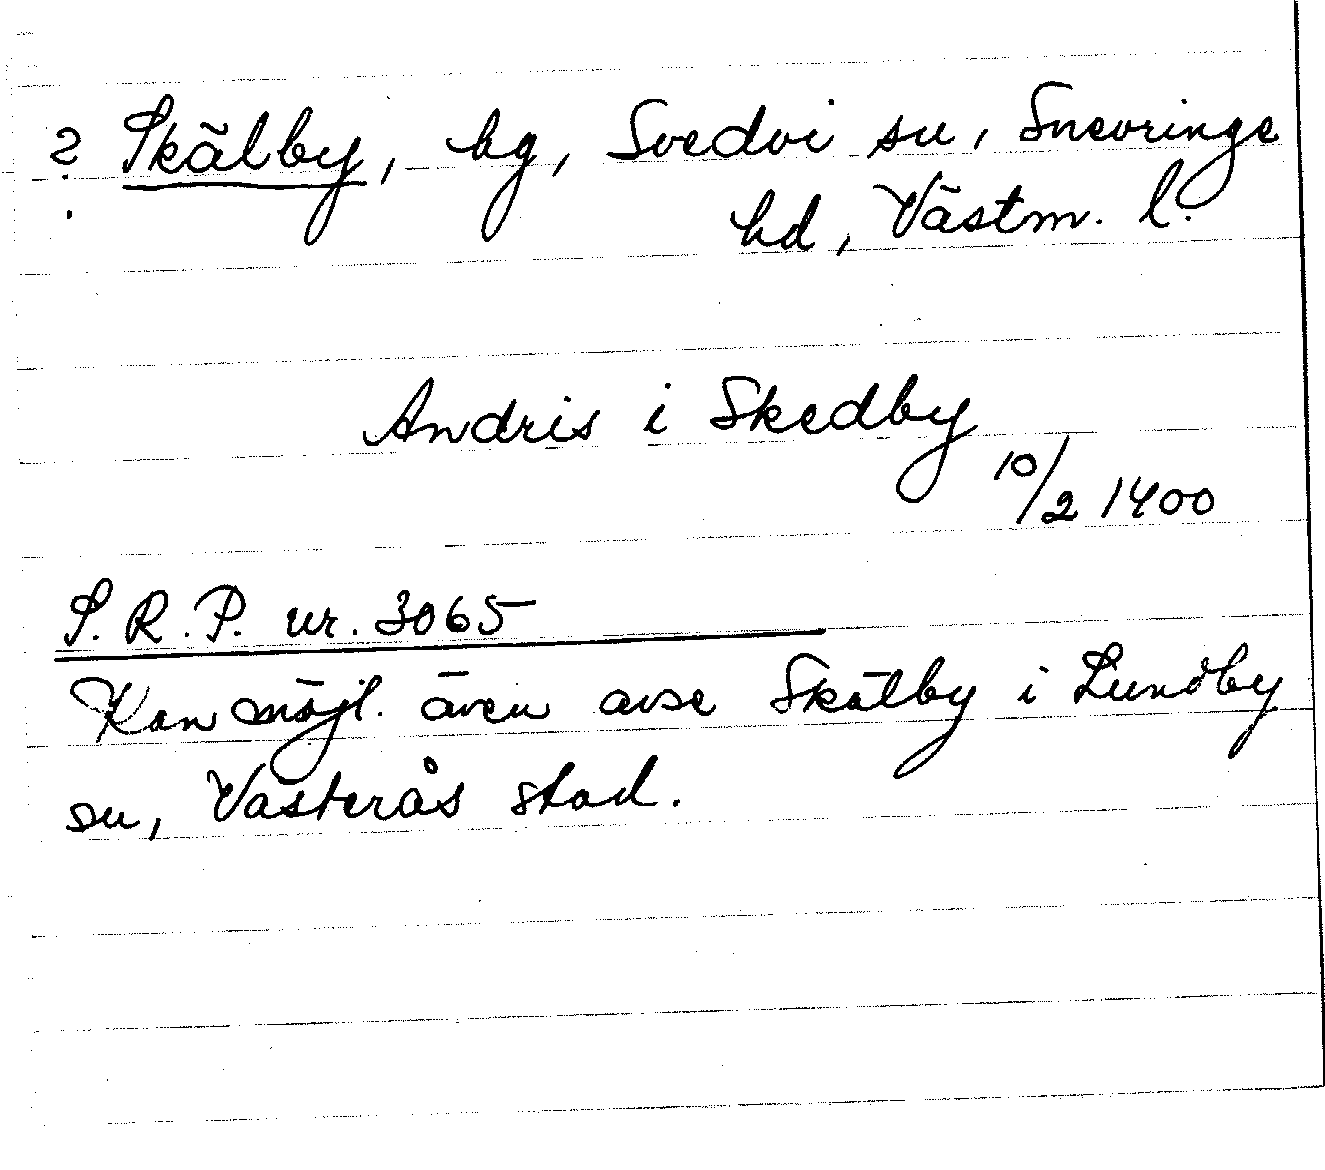 ? Skälby, by, Svedvi sn, Snevringe
hd, Västm. l.
Andris i Skedby
10/2 1400
S.R.P. nr. 3065
Kan möjl. även avse Skälby i Lundby
sn, Västerås stad.